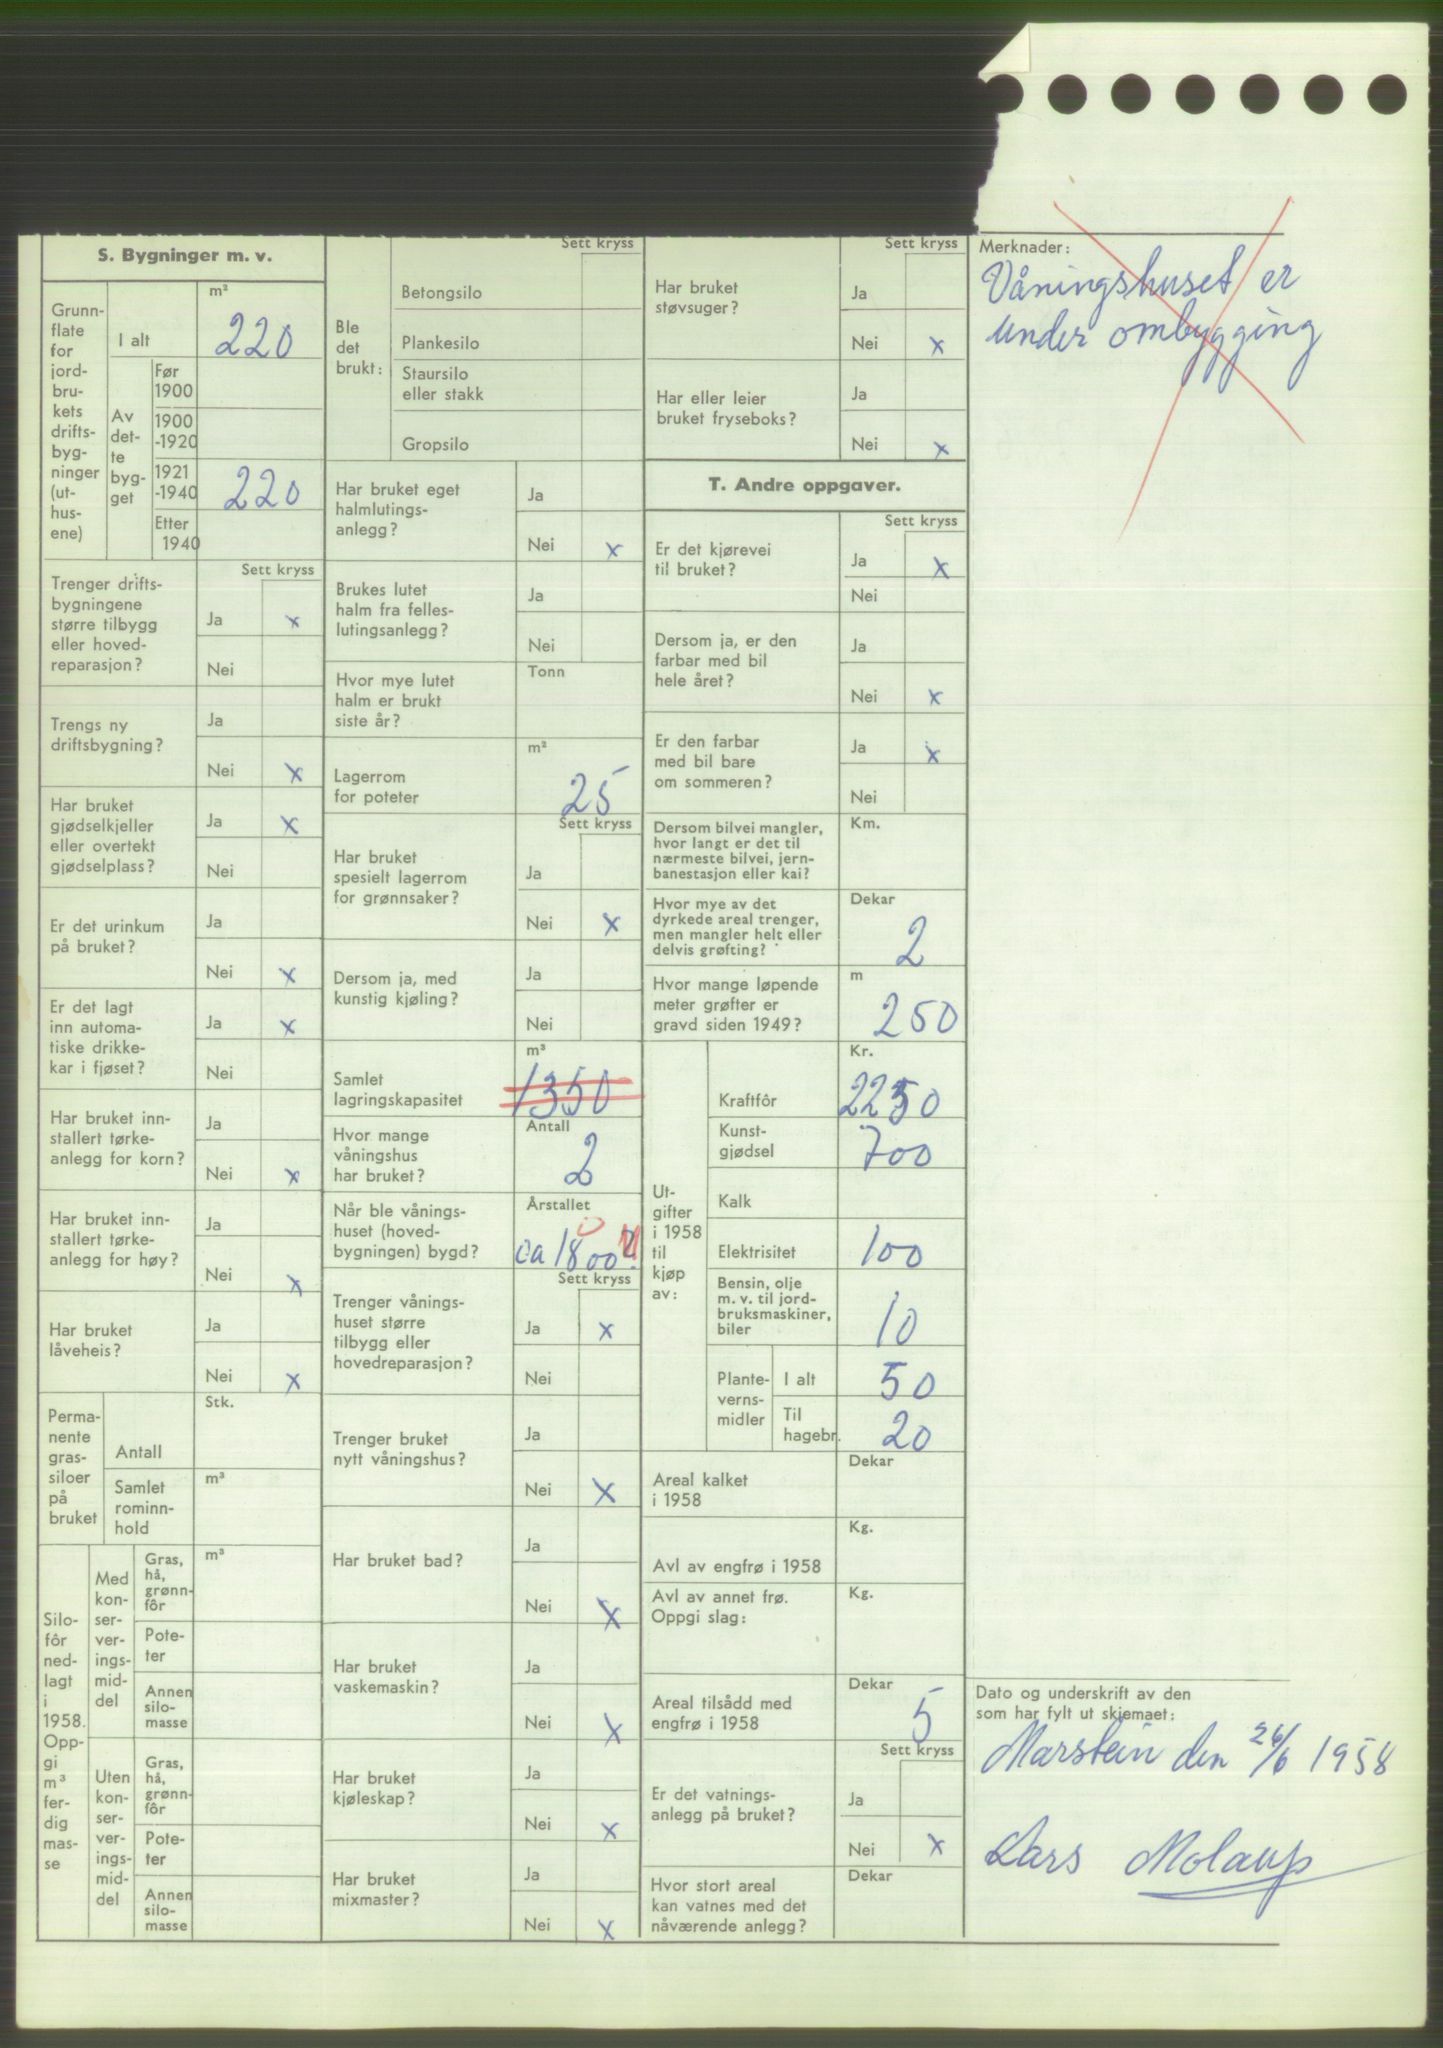 S. Bygninger m. v.
Grunn-
flate
for
jord-
bru-
kets
drifts-
byg-
ninger
(ut-
hus-
ene)
I alt
m²
220
Av
det-
te
byg-
get
Før
1900
1900
-1920
1921
-1940
220
Etter
1940
Sett kryss
Trenger drifts-
bygningene
større tilbygg
eller hoved-
reparasjon?
Ja x
Nei
Trengs ny
driftsbygning?
Ja
Nei x
Har bruket
gjødselkjeller
eller overtekt
gjødselplass?
Ja x
Nei
Er det urinkum
på bruket?
Ja
Nei x
Er det lagt
inn automa-
tiske drikke-
kar i fjøset?
Ja x
Nei
Har bruket inn-
stallert tørke-
anlegg for korn?
Ja
Nei x
Har bruket inn-
stallert tørke-
anlegg for høy?
Ja
Nei x
Har bruket
låveheis?
Ja
Nei x
Perma-
nente
gras-
siloer
på
bruket
Stk.
Antall
Samlet
rominn-
hold
m³
Silo-
fôr
ned-
lagt
i
1958.
Opp-
gi
m³
fer-
dig
mas-
se
Med
kon-
ser-
ver-
ings-
mid-
del
Gras,
hå,
grønn-
fôr
m³
Pote-
ter
Annen
silo-
masse
Uten
kon-
ser-
ver-
ings-
mid-
del
Gras,
hå,
grønn-
fôr
Pote-
ter
Annen
silo-
masse
Ble
det
brukt:
Sett kryss
Betongsilo
Plankesilo
Staursilo
eller stakk
Gropsilo
Har bruket eget
halmlutings-
anlegg?
Ja
Nei x
Brukes lutet
halm fra felles-
lutingsanlegg?
Ja
Nei
Hvor mye lutet
halm er brukt
siste år?
Tonn
Lagerrom
for poteter
m²
25
Sett kryss
Har bruket
spesielt lagerrom
for grønnsaker?
Ja
Nei x
Dersom ja, med
kunstig kjøling?
Ja
Nei
Samlet
lagringskapasitet
m³
1350
Hvor mange
våningshus
har bruket?
Antall
2
Når ble vånings-
huset (hoved-
bygningen) bygd?
Årstallet
ca 1800?
Sett kryss
Trenger vånings-
huset større
tilbygg eller
hovedreparasjon?
Ja x
Nei
Trenger bruket
nytt våningshus?
Ja
Nei x
Har bruket bad?
Ja
Nei x
Har bruket
vaskemaskin?
Ja
Nei x
Har bruket
kjøleskap?
Ja
Nei x
Har bruket
mixmaster?
Ja
Nei x
Sett kryss
Har bruket
støvsuger?
Ja
Nei x
Har eller leier
bruket fryseboks?
Ja
Nei x
T. Andre oppgaver.
Sett kryss
Er det kjørevei
til bruket?
Ja x
Nei
Dersom ja, er den
farbar med bil
hele året?
Ja
Nei x
Er den farbar
med bil bare
om sommeren?
Ja x
Nei
Dersom bilvei mangler,
hvor langt er det til
nærmeste bilvei, jern-
banestasjon eller kai?
Km.
Hvor mye av det
dyrkede areal trenger,
men mangler helt eller
delvis grøfting?
Dekar
2
Hvor mange løpende
meter grøfter er
gravd siden 1949?
m
250
Ut-
gifter
i 1958
til
kjøp
av:
Kr.
Kraftfôr
2250
Kunst-
gjødsel
700
Kalk
Elektrisitet
100
Bensin, olje
m. v. til jord-
bruksmaskiner,
biler
10
Plante-
verns-
midler
I alt
50
Til
hagebr.
20
Areal kalket
i 1958
Dekar
Avl av engfrø i 1958
Kg.
Avl av annet frø.
Oppgi slag:
Kg.
Areal tilsådd med
engfrø i 1958
Dekar
5
Sett kryss
Er det vatnings-
anlegg på bruket?
Ja
Nei x
Hvor stort areal
kan vatnes med det
nåværende anlegg?
Dekar
Merknader:
Våningshuset er
under ombygging
Dato og underskrift av den
som har fylt ut skjemaet:
Marstein den 26/6 1958
Lars Molaup